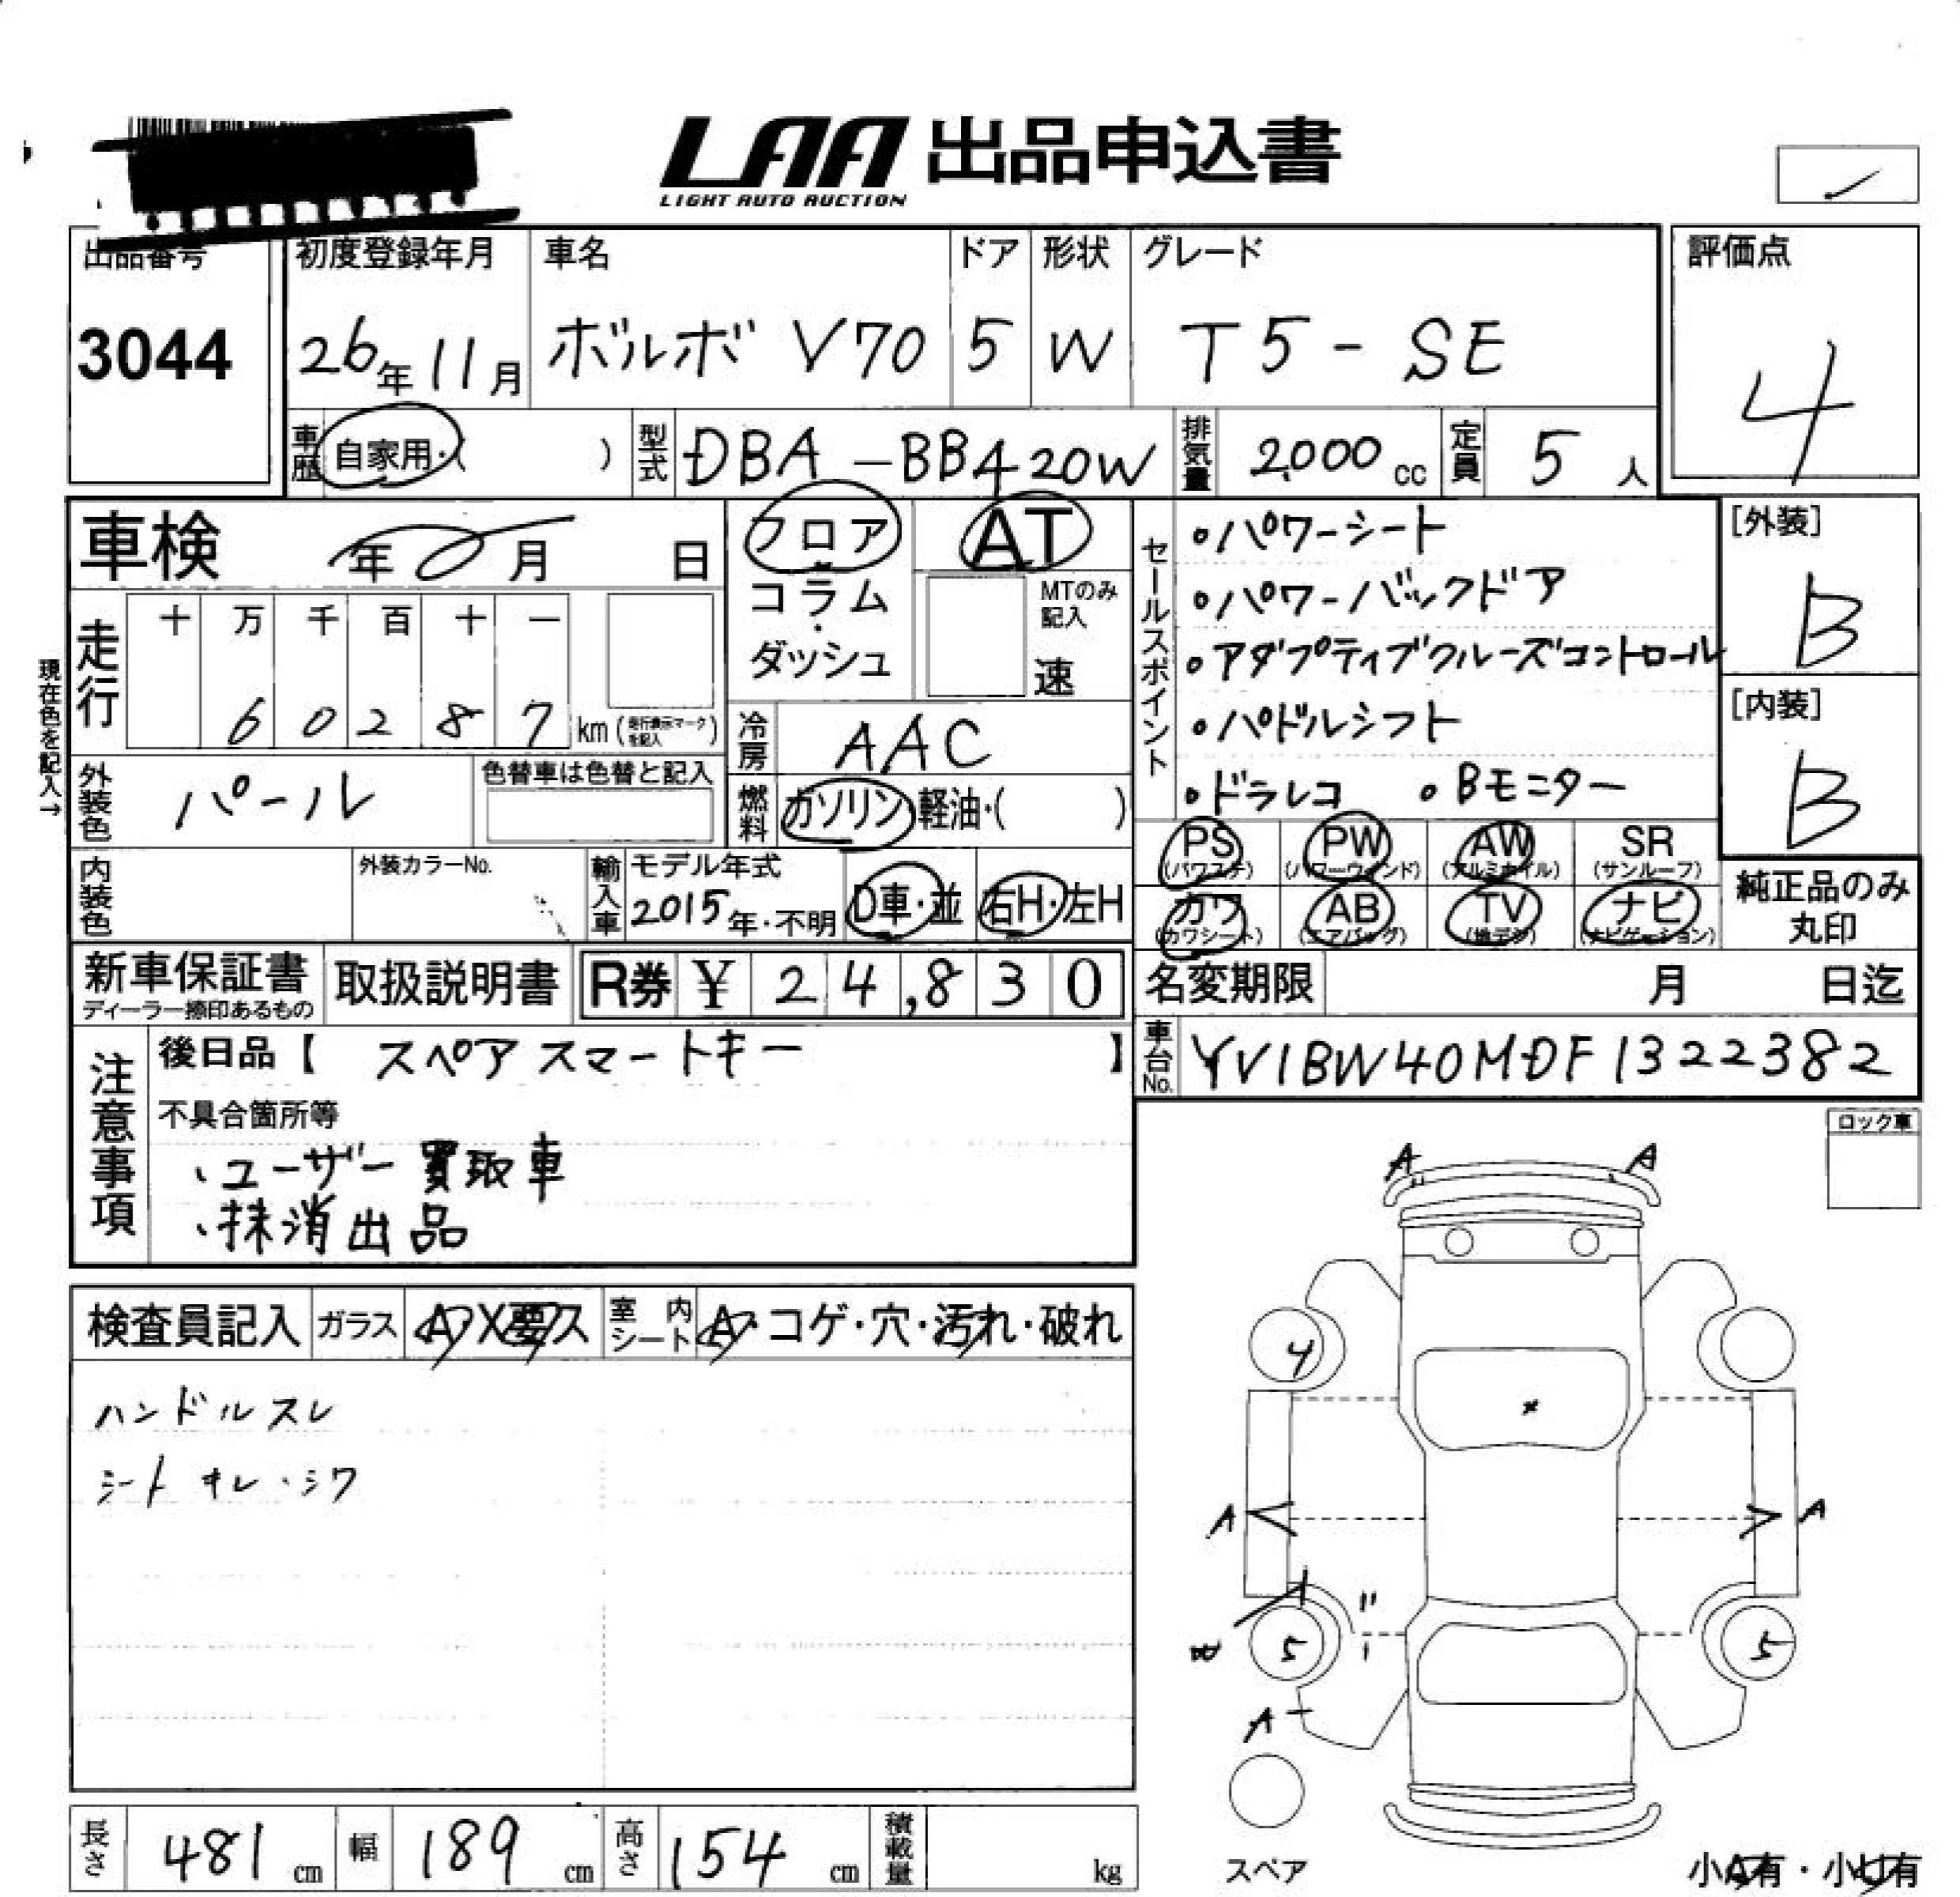 LAA 出品申込書
LIGHT AUTO AUCTION
出品番号 初度登録年月 車名 ドア 形状 グレード 評価点
3044 26年11月 ボルボ V70 5 W T5-SE 4
車歴 自家用・( ) 型式 DBA-BB420W 排気量 2,000 cc 定員 5 人
車検 年 月 日
フロア・コラム・ダッシュ
AT
MTのみ記入
速
セールスポイント
・パワーシート
・パワーバックドア
・アダプティブクルーズコントロール
・パドルシフト
・ドラレコ ・Bモニター
[外装]
B
[内装]
B
現在色を記入→
走行 十 万 千 百 十 一
60287 km (走行表示マークを記入)
冷房 AAC
外装色 パール 色替車は色替と記入
燃料 ガソリン・軽油・( )
PS (パワステ) PW (パワーウインド) AW (アルミホイル) SR (サンルーフ)
カワ (カワシート) AB (エアバッグ) TV (地デジ) ナビ (ナビゲーション)
純正品のみ丸印
内装色 外装カラーNo. 輸入車 モデル年式 2015年・不明 D車・並 右H・左H
新車保証書 ディーラー捺印あるもの 取扱説明書 R券 ¥ 24,830
名変期限 月 日迄
車台No. YV1BW40MDF1322382
注意事項
後日品【 スペアスマートキー 】
不具合箇所等
、ユーザー買取車
、抹消出品
ロック車
検査員記入 ガラス A・X要ス 室内シート A・コゲ・穴・汚れ・破れ
ハンドルスレ
シートキレ・シワ
A A
4
A A
5 5
A
スペア
小A有・小U有
長さ 481 cm 幅 189 cm 高さ 154 cm 積載量 kg